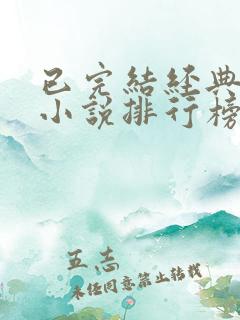 已完結經典
小說排行榜
五志
未经同意禁止转载